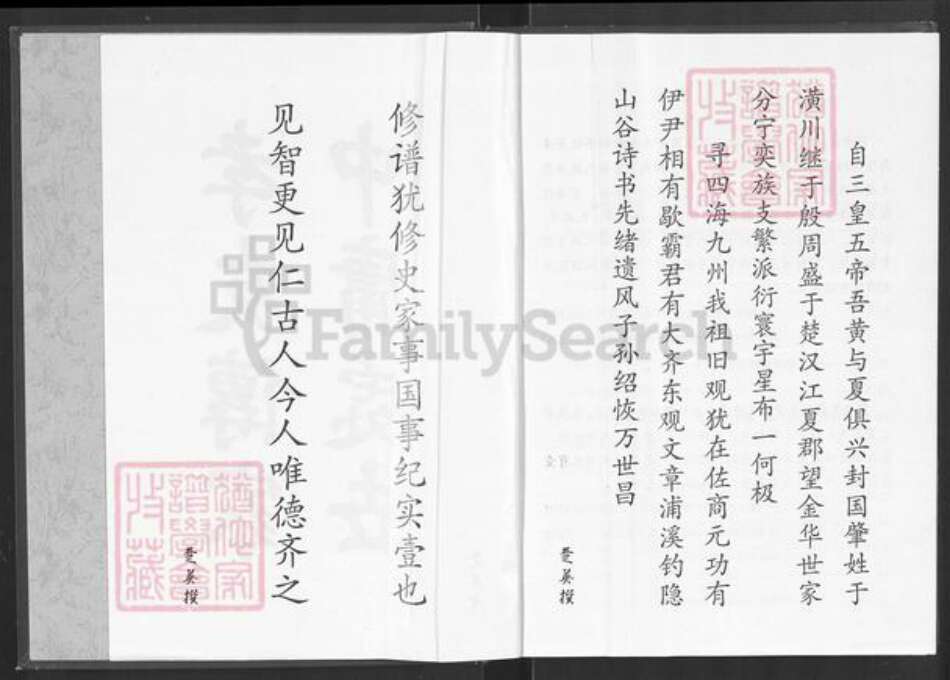 自三皇五帝吾黄与夏俱兴封国肇姓于
潢川继于殷周盛于楚汉江夏郡望金华世家
分宁奕族支繁派衍寰宇星布一何极
寻四海九州我祖旧观犹在佐商元功有
伊尹相有歇霸君有大齐东观文章浦溪钓隐
山谷诗书先绪遗风子孙绍恢万世昌
楚英撰
修谱犹修史家事国事纪实壹也
见智更见仁古人今人唯德齐之
楚英撰
犹他家
谱学会
收藏
犹他家
谱学会
收藏
FamilySearch